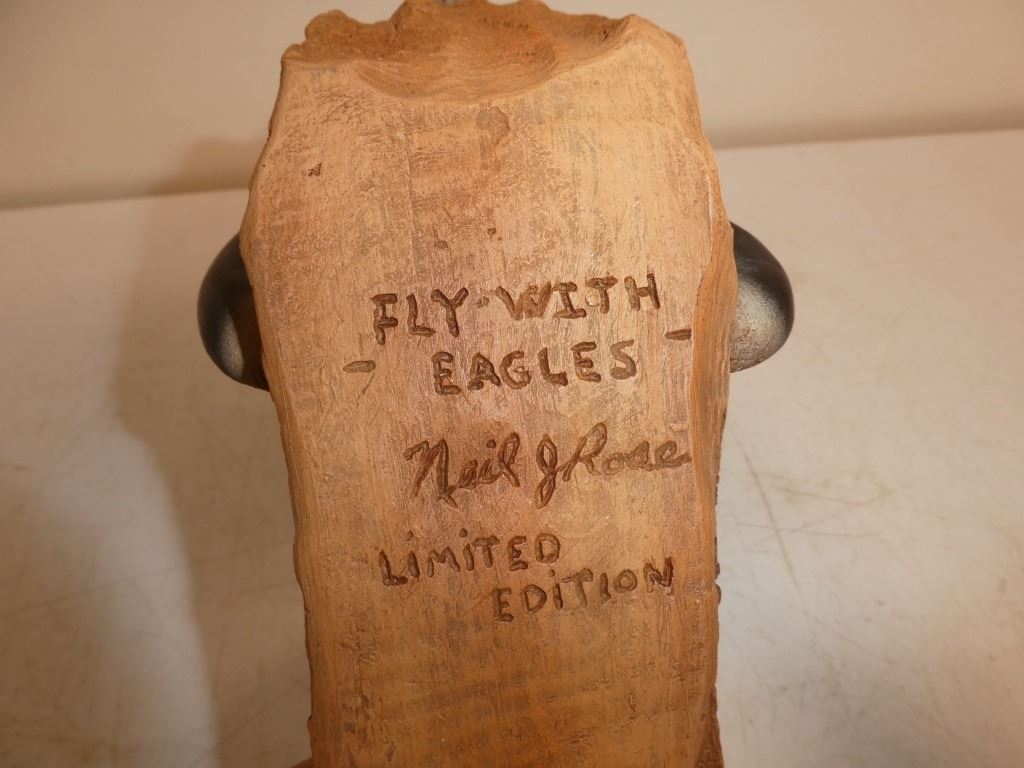 FLY·WITH
- EAGLES -
Neil J Rose
LiMiTED
EDiTiON